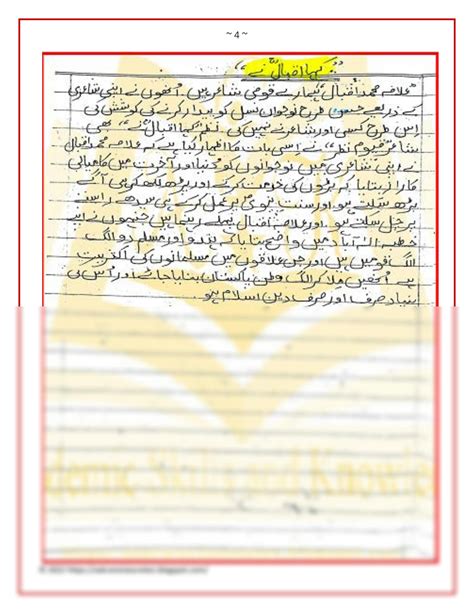 ~ 4 ~
”کہا اقبالؒ نے“
”علامہ محمد اقبال“ ہمارے قومی شاعر ہیں۔ اُنھوں نے اپنی شاعری
کے ذریعے جس طرح نوجوان نسل کو بیدار کرنے کی کوشش کی
اس طرح کسی اور شاعر نے نہیں کی۔ نظم ”کہا اقبالؒ نے“ بھی
شاعر ”قیوم نظر“ نے اسی بات کا اظہار کیا ہے کہ علامہ محمد اقبال
نے اپنی شاعری میں نوجوانوں کو دُنیا اور آخرت میں کامیابی
کا راز بتایا کہ بڑوں کی خدمت کرکے اور پڑھ لکھ کر ہی آگے
بڑھ سکتے ہو اور سنت نبوی پر عمل کرکے ہی سیدھے راستے
پر چل سکتے ہو۔ اور علامہ اقبال پہلے رہنما ہیں جنھوں نے اپنے
خطبہ الہ آباد میں واضح بتایا کہ ہندو اور مسلم دو الگ
الگ قومیں ہیں اور جن علاقوں میں مسلمانوں کی اکثریت
ہے اُنھیں مِلا کر الگ وطن پاکستان بنایا جائے اور اُس کی
بنیاد صرف اور صرف دین اسلام ہو۔